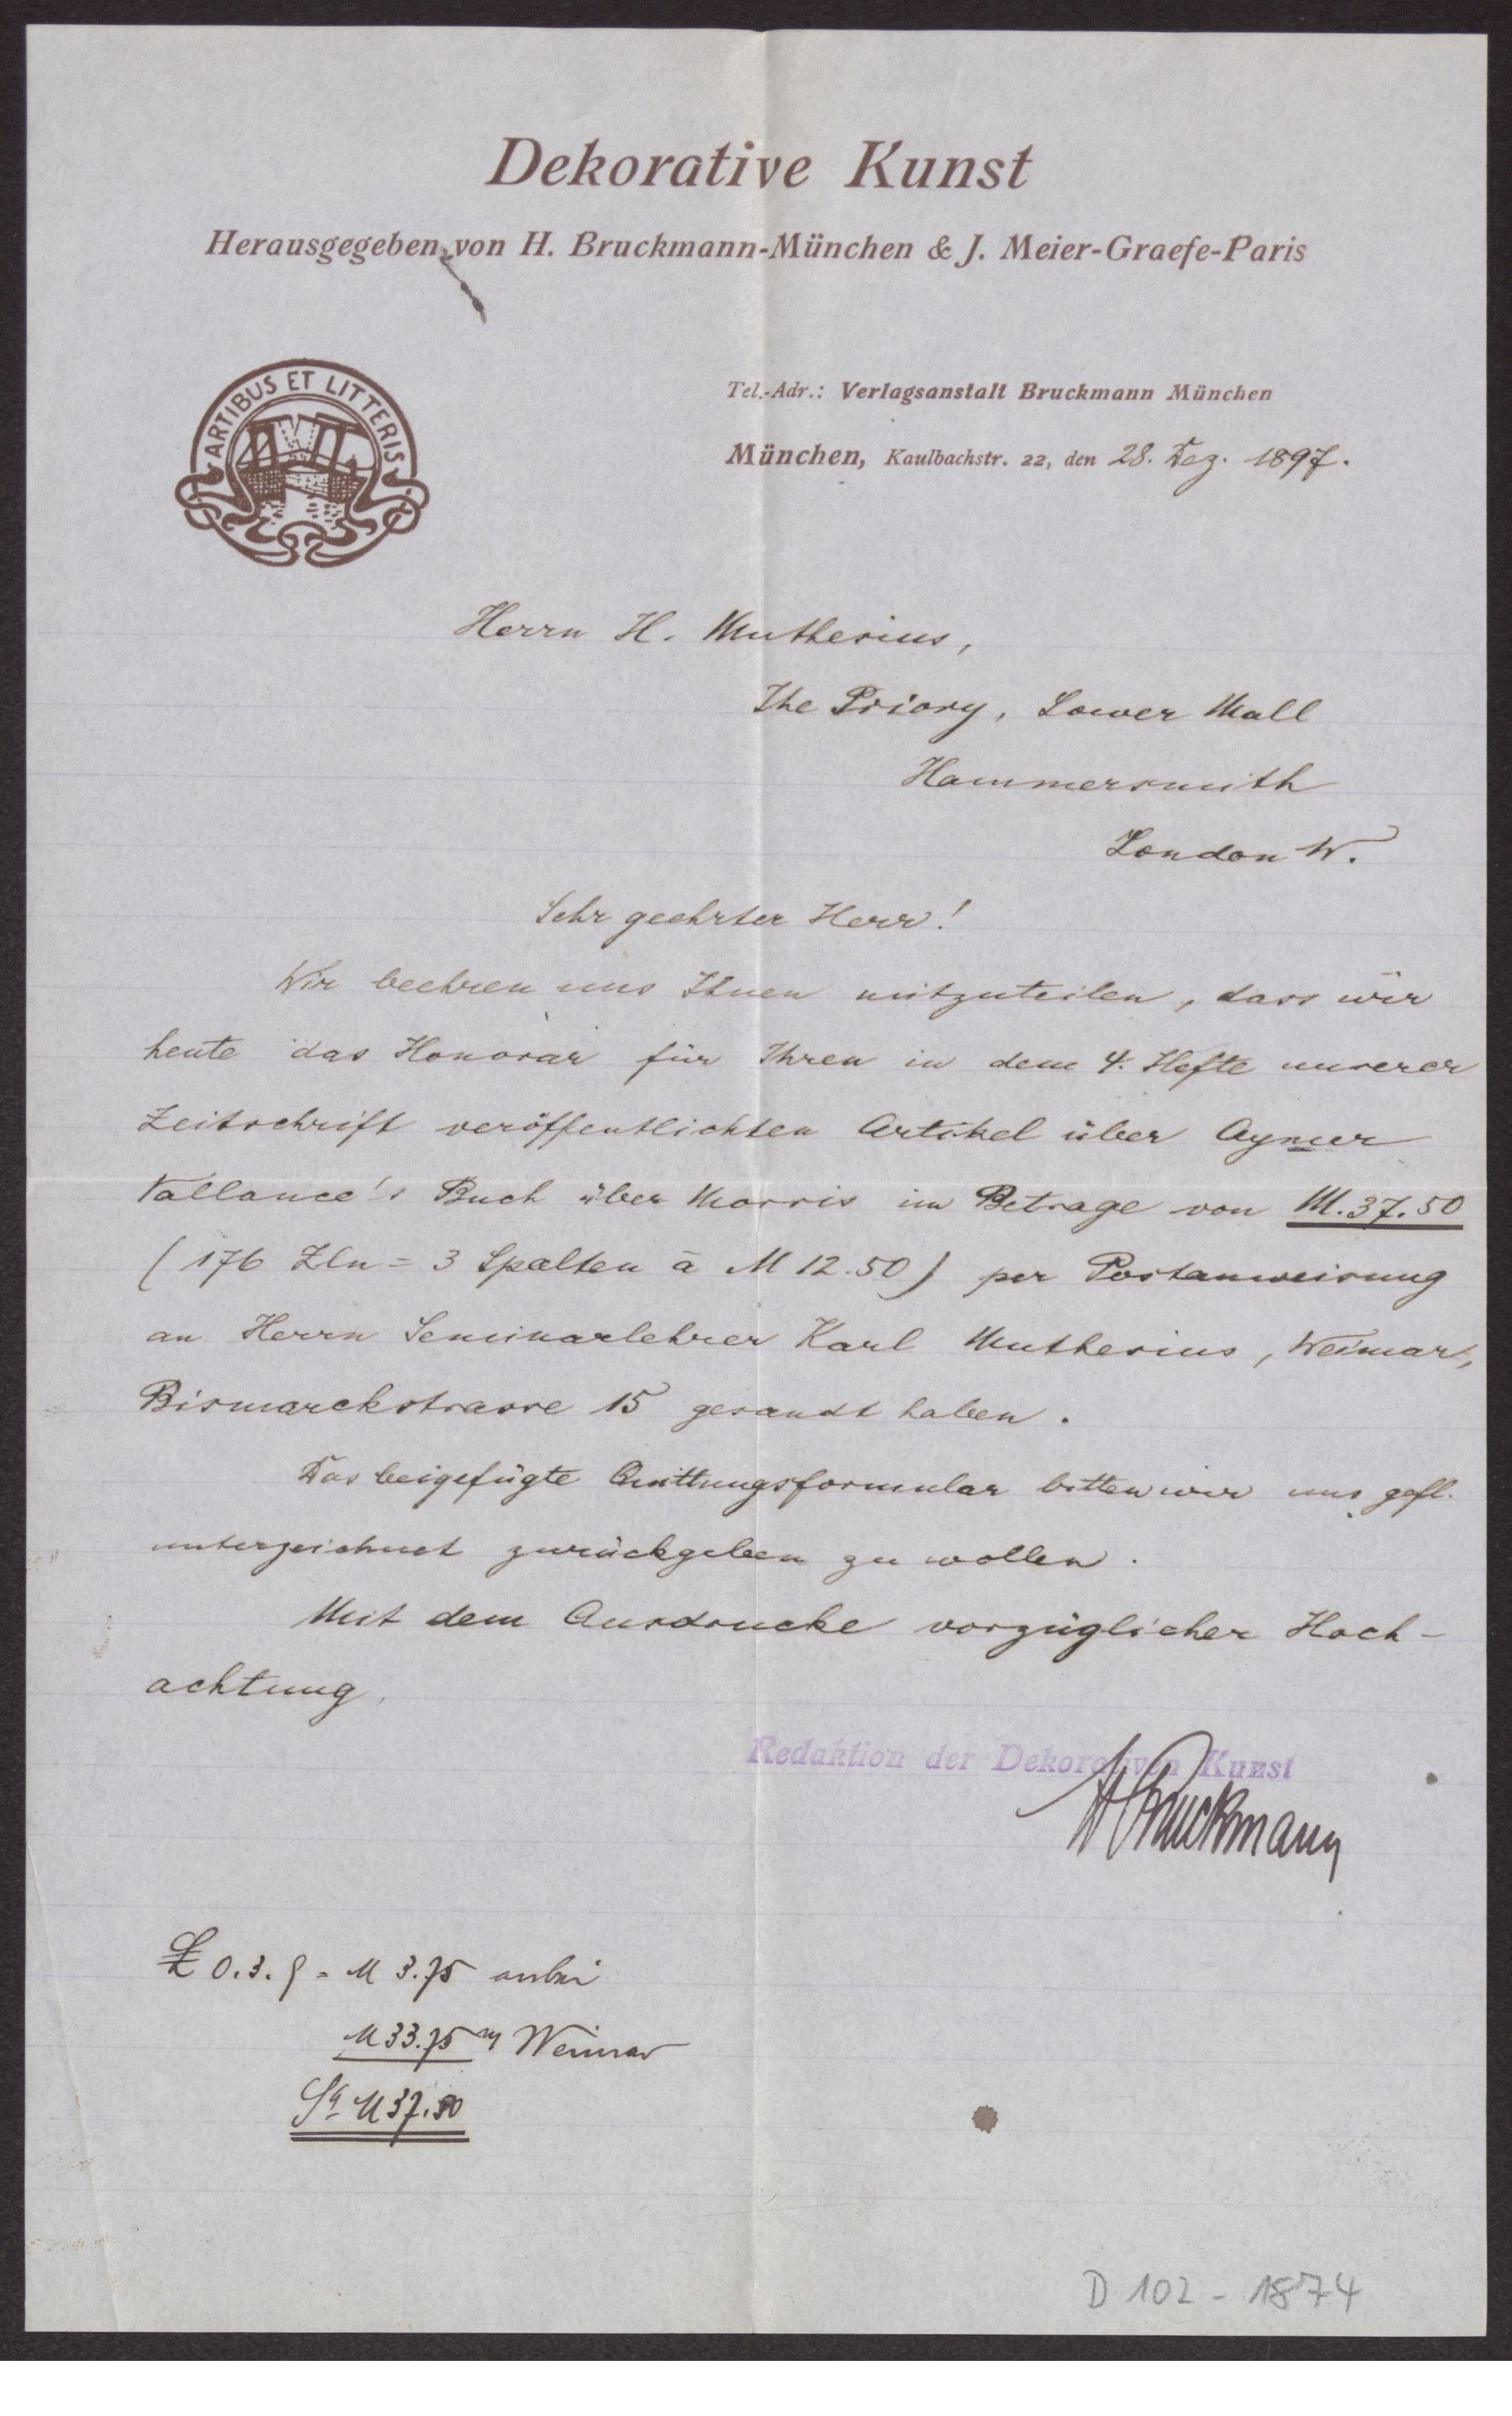 Dekorative Kunst
Herausgegeben von H. Bruckmann-München & J. Meier-Graefe-Paris
ARTIBUS ET LITTERIS
Tel.-Adr.: Verlagsanstalt Bruckmann München
München, Kaulbachstr. 22, den 28. Dez. 1897.
Herrn H. Muthesius,
The Priory, Lower Mall
Hammersmith
London W.
Sehr geehrter Herr!
Wir beehren uns Ihnen mitzuteilen, dass wir
heute das Honorar für Ihren in dem 4. Hefte unserer
Zeitschrift veröffentlichten Artikel über Aymer
Vallance's Buch über Morris im Betrage von M. 37.50
(176 Zln = 3 Spalten à M 12.50) per Postanweisung
an Herrn Seminarlehrer Karl Muthesius, Weimar,
Bismarckstrasse 15 gesandt haben.
Das beigefügte Quittungsformular bitten wir uns gefl.
unterzeichnet zurückgeben zu wollen.
Mit dem Ausdrucke vorzüglicher Hoch-
achtung,
Redaktion der Dekorativen Kunst
H Bruckmann
£ 0.3.9 = M 3.75 anbei
M 33.75 Weimar
M 37.50
D 102 - 1874